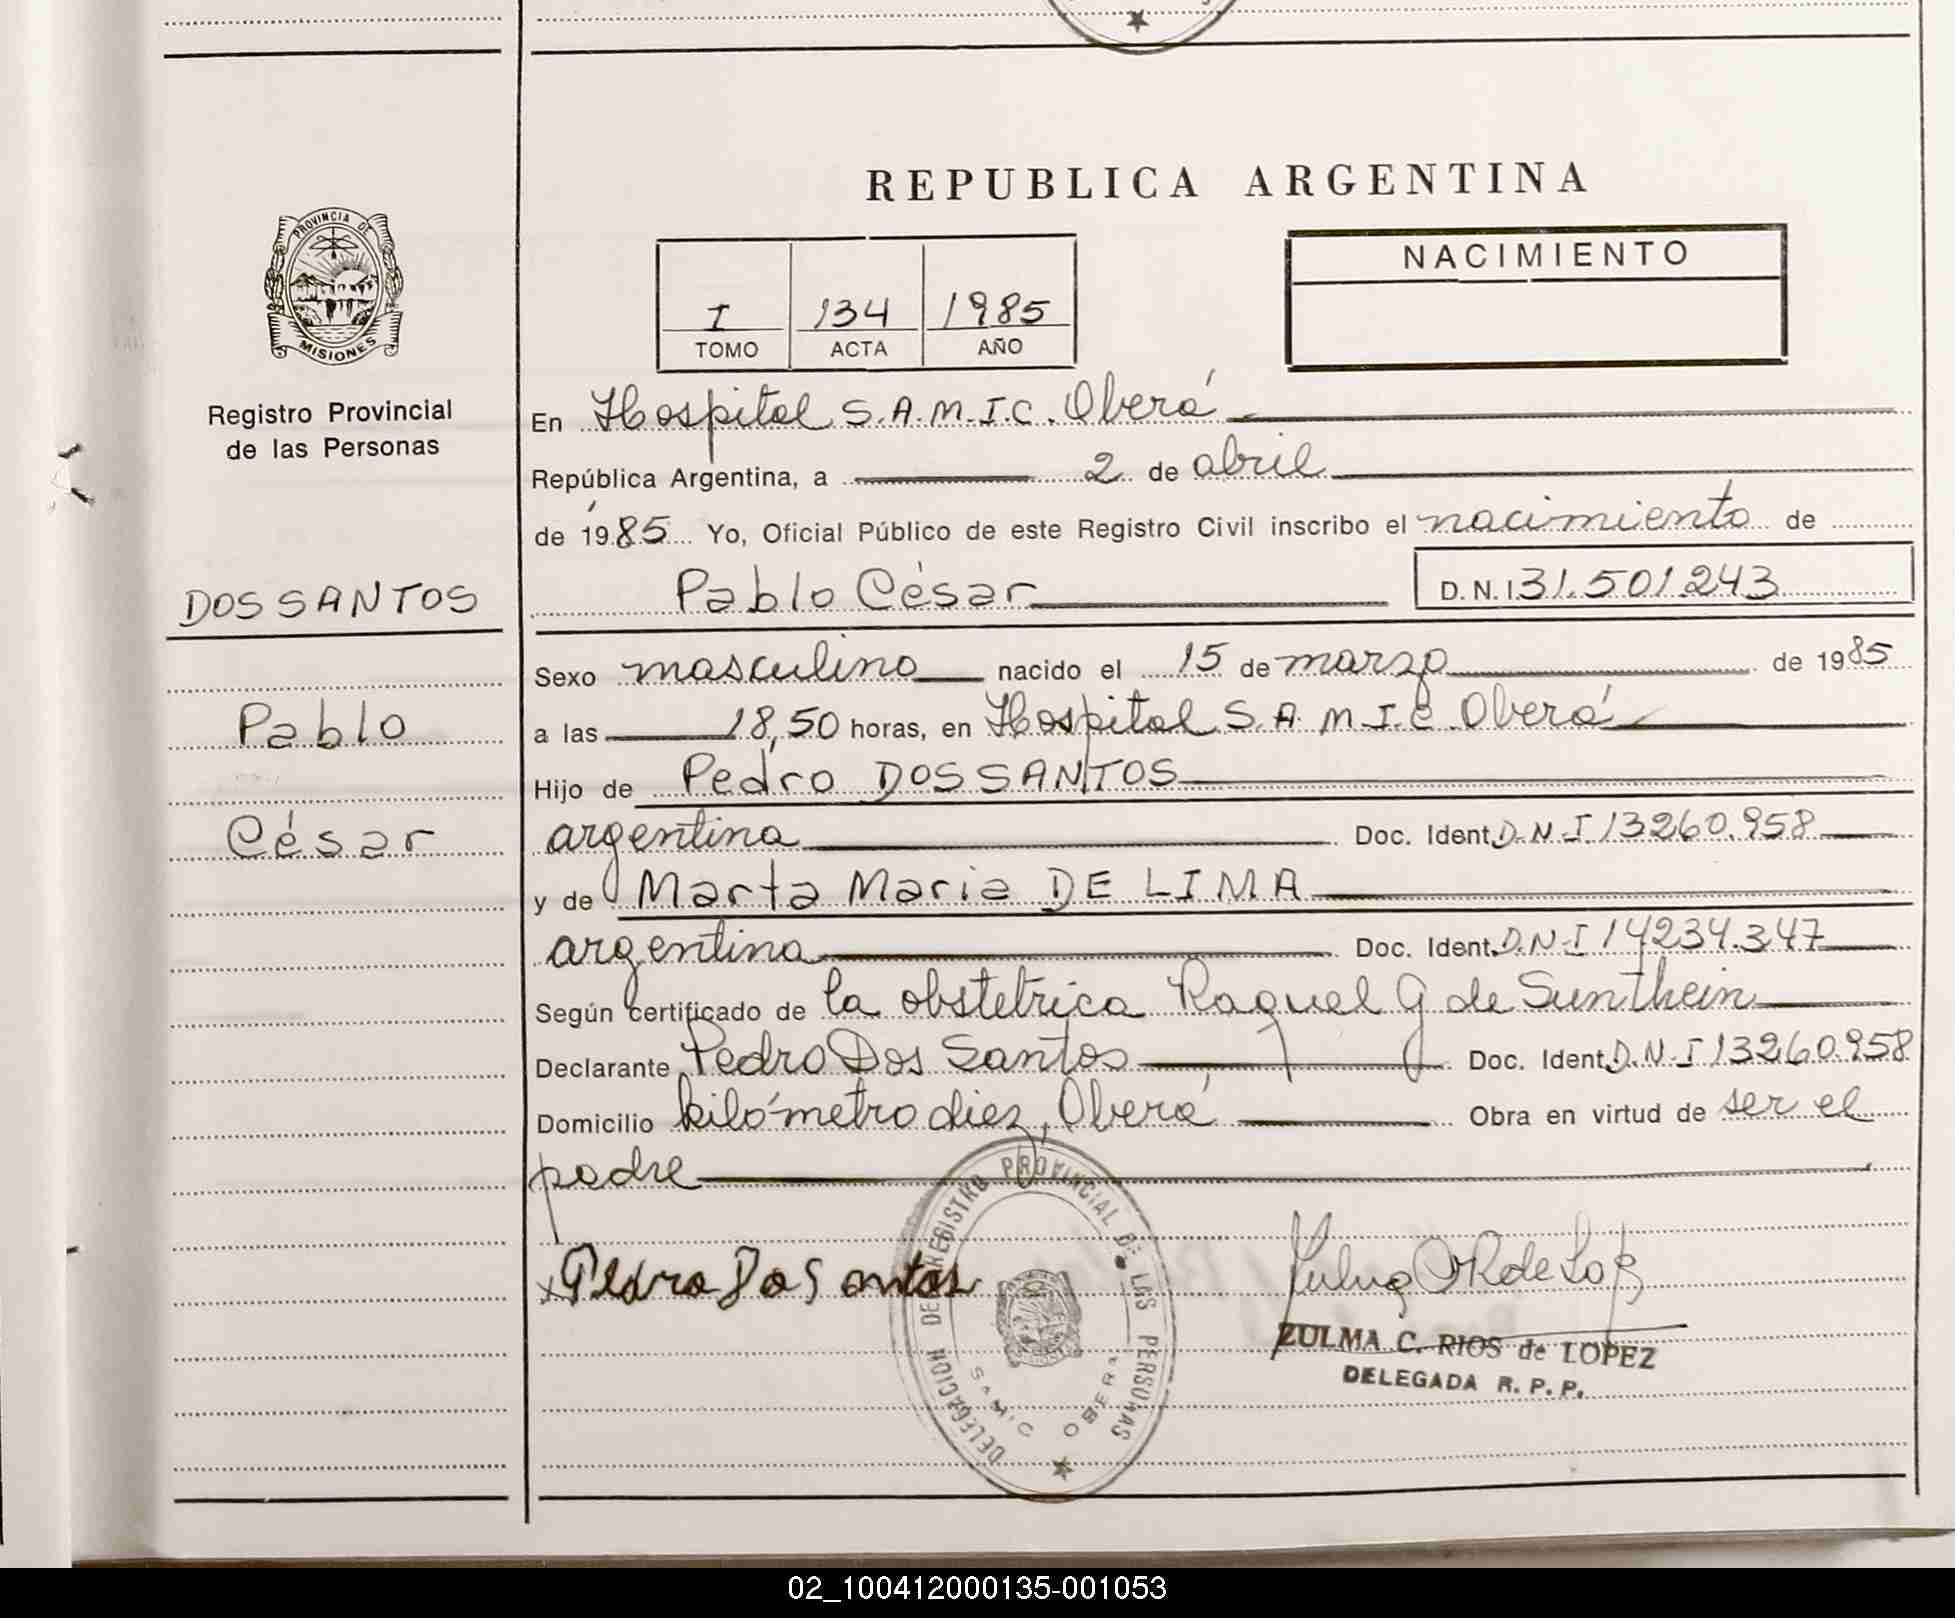 REPUBLICA ARGENTINA
PROVINCIA DE
MISIONES
Registro Provincial
de las Personas
I 134 1985
TOMO ACTA AÑO
NACIMIENTO
En Hospital S.A.M.I.C. Oberá
República Argentina, a 2 de abril
de 1985 Yo, Oficial Público de este Registro Civil inscribo el nacimiento de
DOS SANTOS
Pablo César D.N.I. 31.501.243
Pablo
César
Sexo masculino nacido el 15 de marzo de 1985
a las 18,50 horas, en Hospital S.A.M.I.C. Oberá
Hijo de Pedro DOS SANTOS
argentina Doc. Ident. D.N.I 13260.958
y de Marta Maria DE LIMA
argentina Doc. Ident. D.N.I 14234.347
Según certificado de la obstetrica Raquel G de Sunthein
Declarante Pedro Dos Santos Doc. Ident. D.N.I 13260.958
Domicilio kilómetro diez, Oberá Obra en virtud de ser el
padre
x Pedro Do Santos
DELEGACION DEL REGISTRO PROVINCIAL DE LAS PERSONAS
SAMIC OBERA
ZULMA C. RIOS de LOPEZ
DELEGADA R. P. P.
02_100412000135-001053